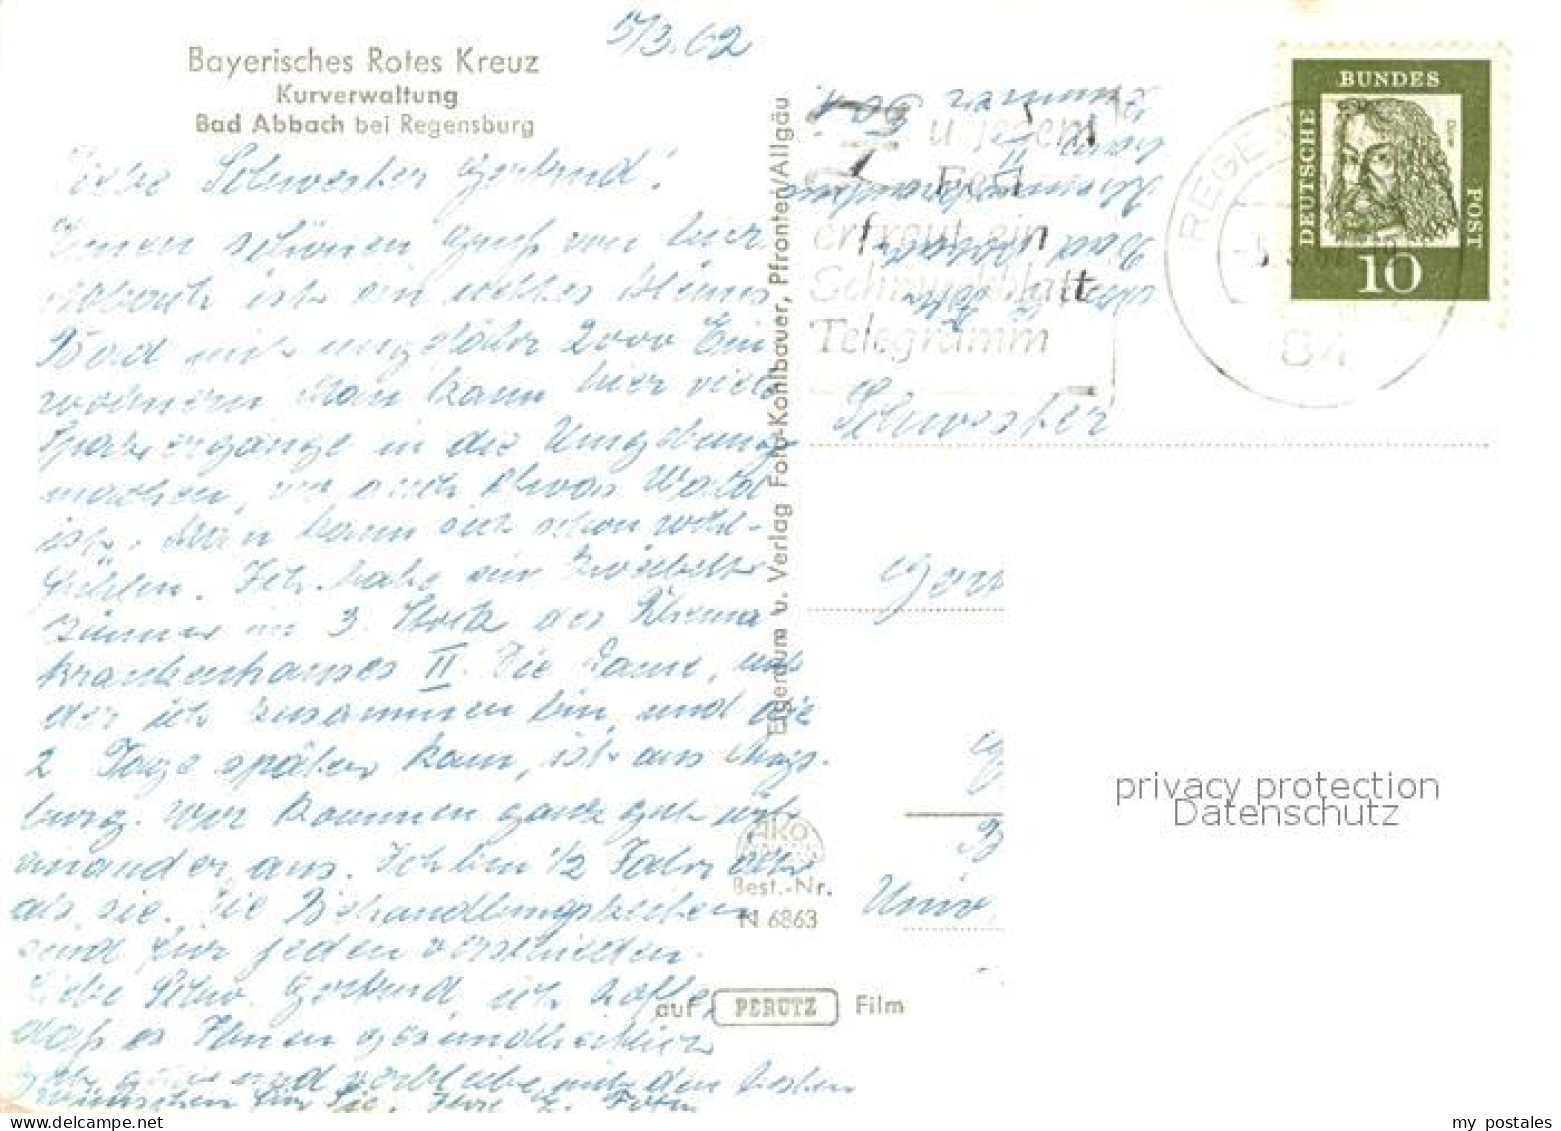 5/3.62
Bayerisches Rotes Kreuz
Kurverwaltung
Bad Abbach bei Regensburg
Liebe Schwester Gertrud!
Einen schönen Gruß von hier
Abbach ist ein nettes kleines
Bad mit ungefähr 2000 Ein
wohnern. Man kann hier viele
Spaziergänge in die Umgebung
machen, wo auch etwas Wald
ist. Man kann sich schon wohl-
fühlen. Ich habe ein Zweibett-
zimmer im 3. Stock des Rheuma
krankenhauses II. Die Dame, mit
der ich zusammen bin, und die
2 Tage später kam, ist aus Augs-
burg. Wir kommen ganz gut mit-
einander aus. Ich bin 1/2 Jahr älter
als sie. Die Behandlungszeiten
sind für jeden verschieden.
Liebe Schw. Gertrud, ich hoffe,
daß es Ihnen gesundheitlich
gut geht und verbleibe mit den besten
Wünschen für Sie, Ihre
Eigentum u. Verlag Foto-Kohlbauer, Pfronten/Allgäu
AKO
Best.-Nr.
N 6863
auf PERUTZ Film
Zimmer
Bad Abbach
u jedem
Fest
erfreut ein
Schmuckblatt
Telegramm
REGE
84
DEUTSCHE
BUNDES
POST
Dürer
10
Schwester
Gert
Univ.
privacy protection
Datenschutz
my postales